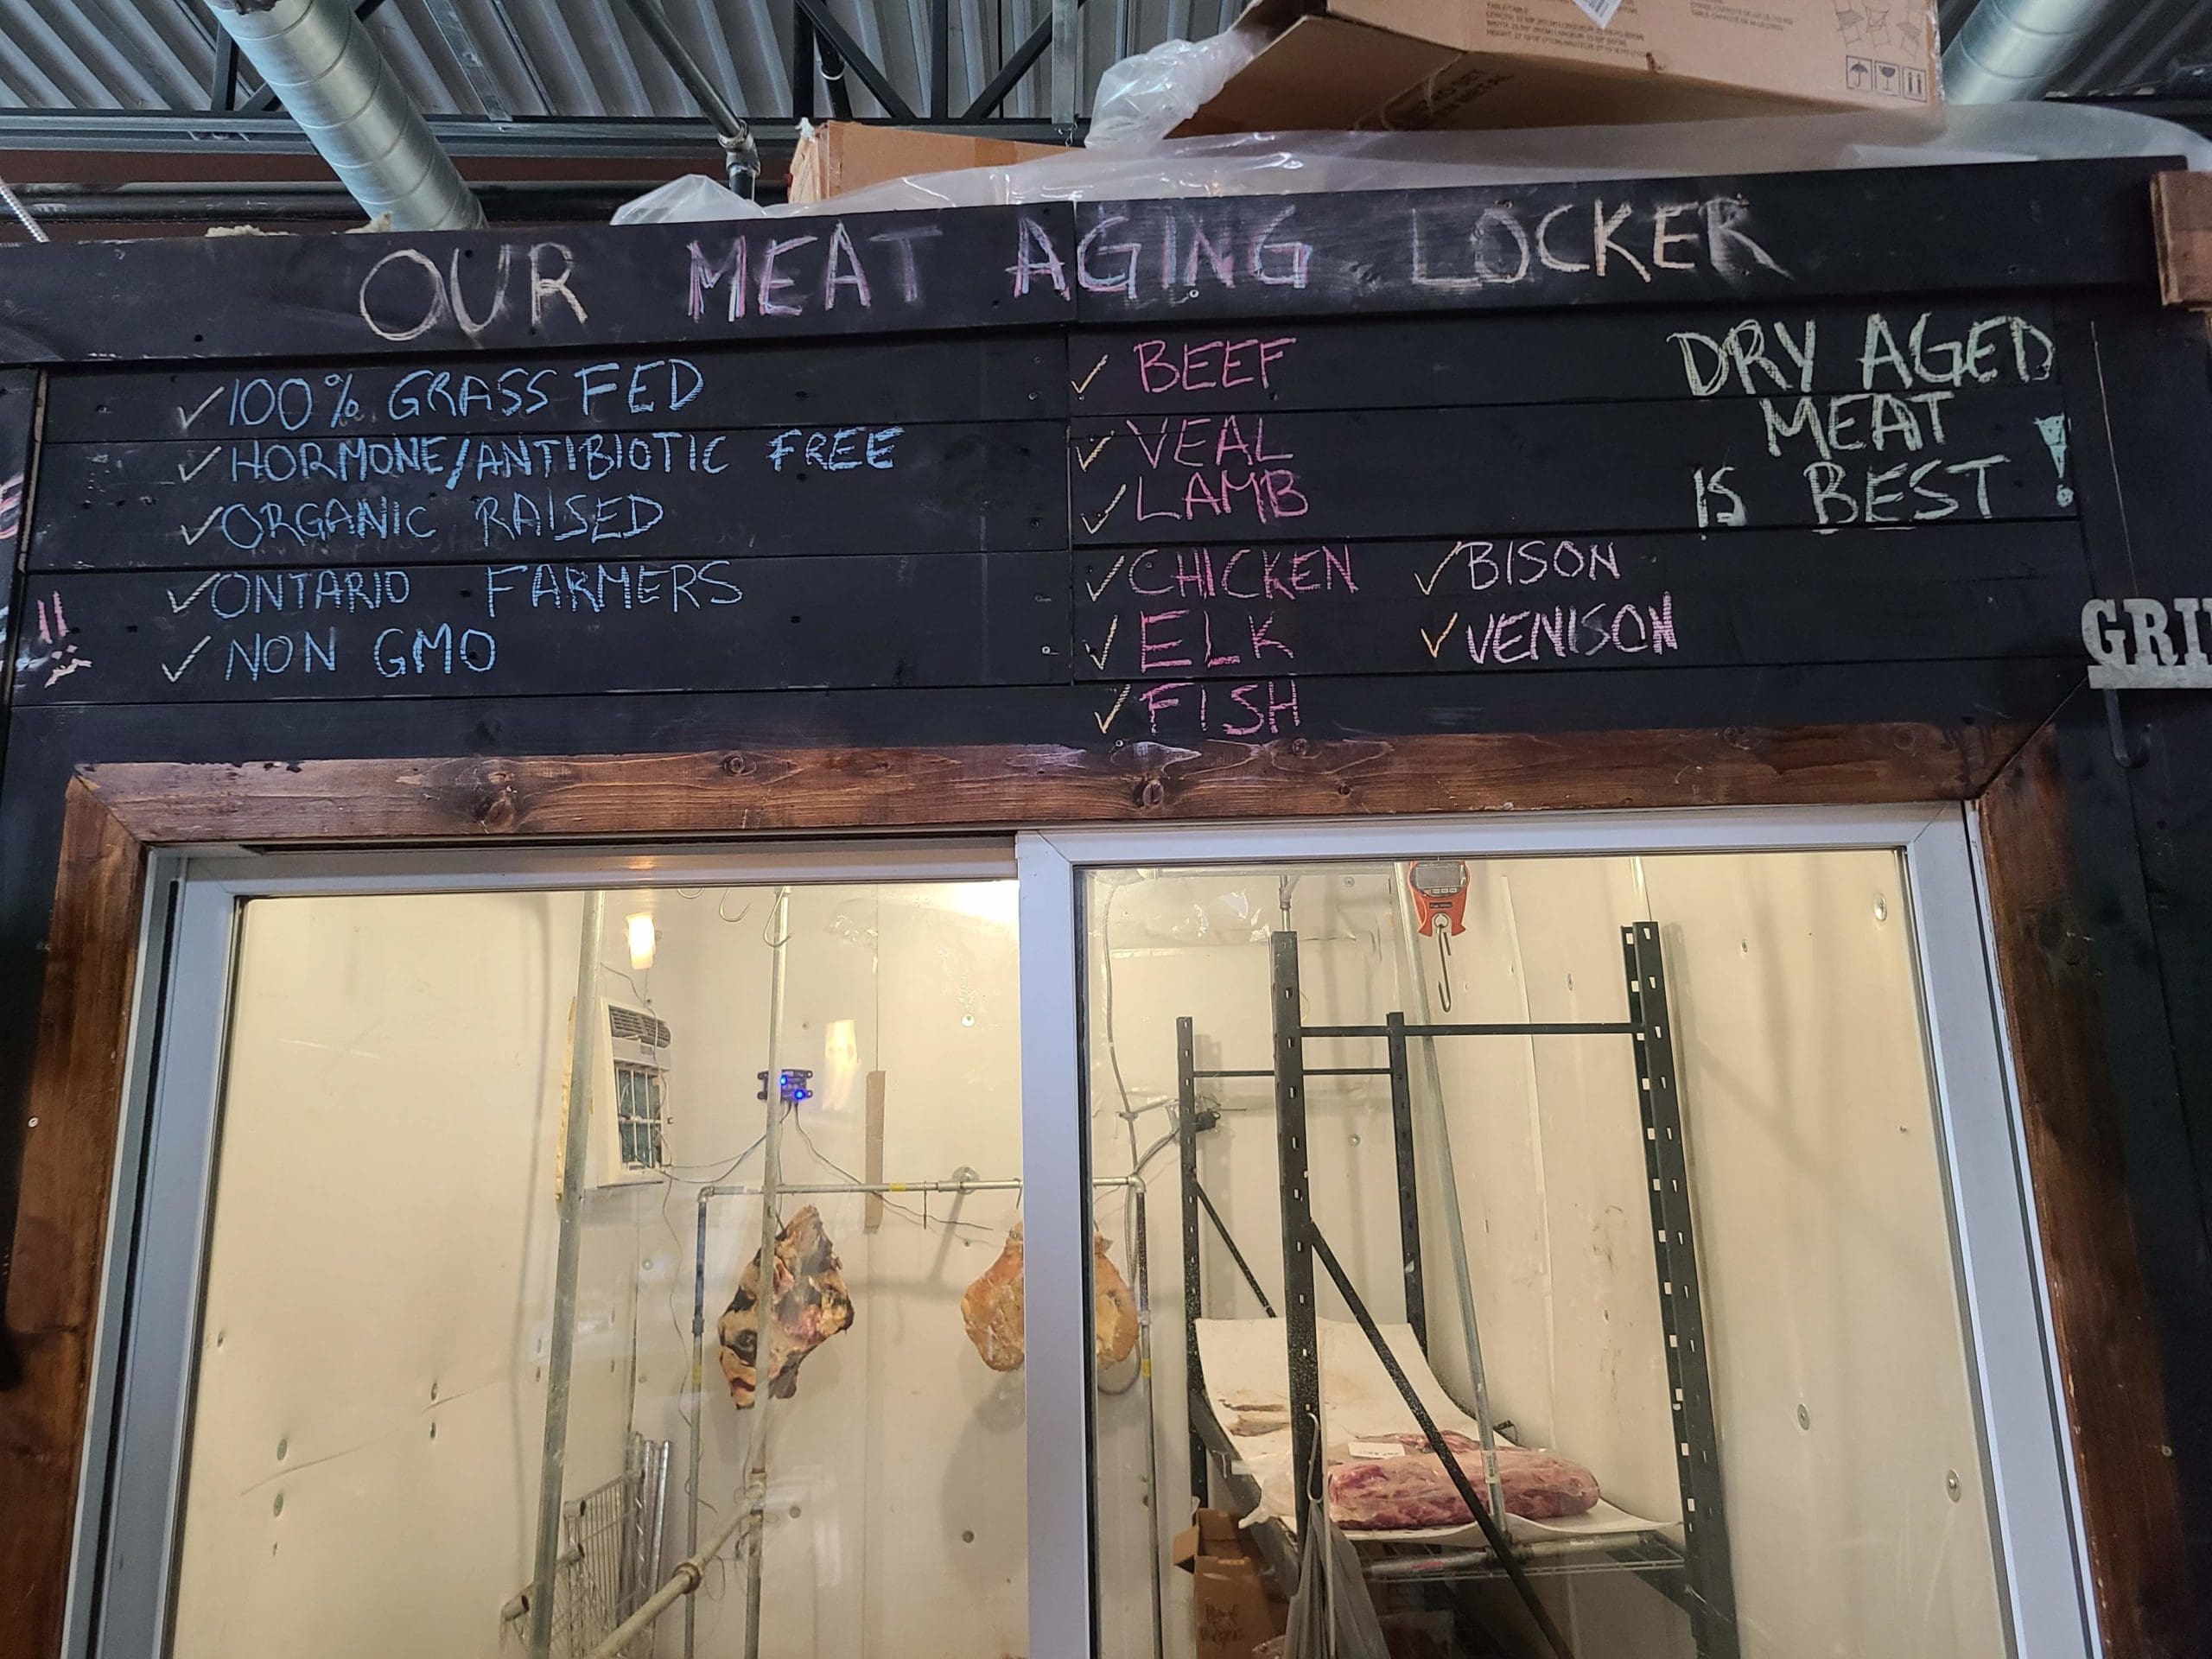 OUR MEAT AGING LOCKER
✓ 100% GRASS FED
✓ HORMONE/ANTIBIOTIC FREE
✓ ORGANIC RAISED
✓ ONTARIO FARMERS
✓ NON GMO
✓ BEEF
✓ VEAL
✓ LAMB
✓ CHICKEN
✓ ELK
✓ FISH
✓ BISON
✓ VENISON
DRY AGED
MEAT
IS BEST!
GRI